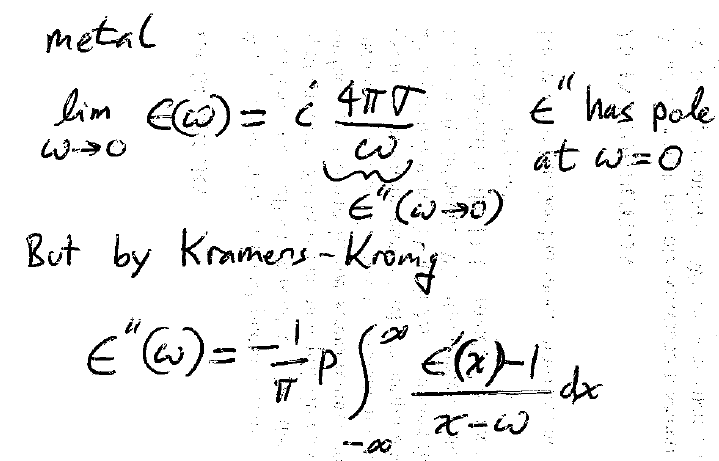 metal
lim ω→0 ϵ(ω) = i 4πσ/ω ϵ'' has pole
at ω=0
ϵ''(ω→0)
But by Kramers-Kronig
ϵ''(ω) = -1/π P ∫_{-∞}^{∞} (ϵ'(x)-1)/(x-ω) dx